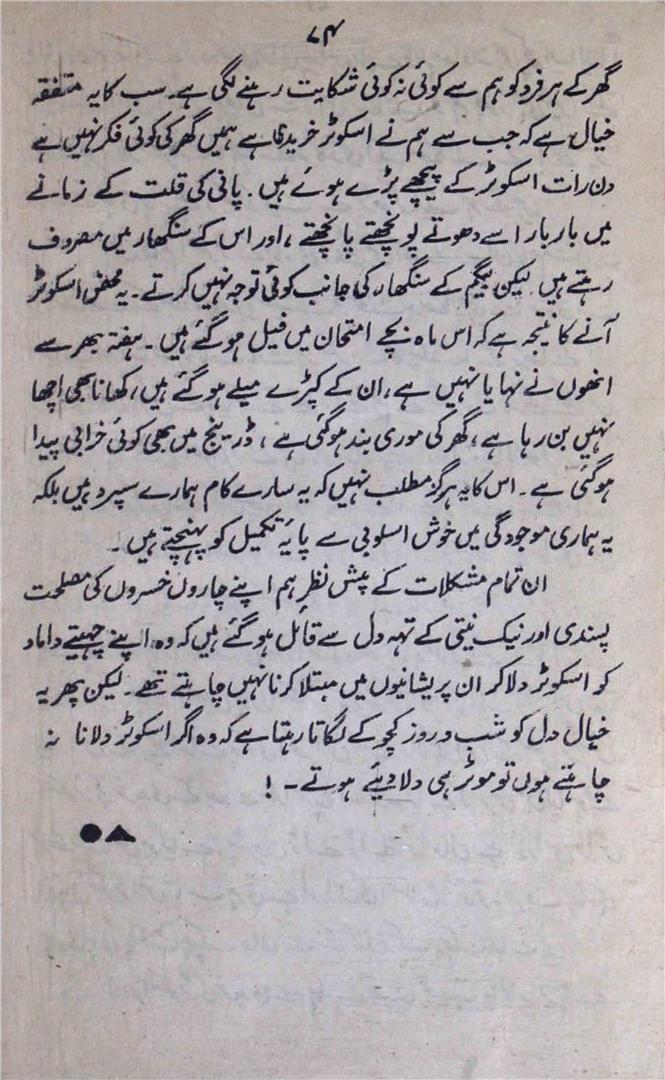 ۷۴
گھر کے ہر فرد کو ہم سے کوئی نہ کوئی شکایت رہنے لگی ہے۔ سب کا یہ متفقہ
خیال ہے کہ جب سے ہم نے اسکوٹر خریدی ہے ہمیں گھر کی کوئی فکر نہیں ہے
دن رات اسکوٹر کے پیچھے پڑے ہوئے ہیں۔ پانی کی قلت کے زمانے
میں بار بار اسے دھوتے پونچھتے پانچھتے، اور اس کے سنگھار میں مصروف
رہتے ہیں لیکن بیگم کے سنگھار کی جانب کوئی توجہ نہیں کرتے۔ یہ محض اسکوٹر
آنے کا نتیجہ ہے کہ اس ماہ بچے امتحان میں فیل ہو گئے ہیں۔ ہفتہ بھر سے
انھوں نے نہایا نہیں ہے، ان کے کپڑے میلے ہو گئے ہیں، کھانا بھی اچھا
نہیں بن رہا ہے، گھر کی موری بند ہو گئی ہے، ڈرینج میں بھی کوئی خرابی پیدا
ہو گئی ہے۔ اس کا یہ ہرگز مطلب نہیں کہ یہ سارے کام ہمارے سپرد ہیں بلکہ
یہ ہماری موجودگی میں خوش اسلوبی سے پایۂ تکمیل کو پہنچتے ہیں۔
ان تمام مشکلات کے پیش نظر ہم اپنے چاروں خسروں کی مصلحت
پسندی اور نیک نیتی کے تہہ دل سے قائل ہو گئے ہیں کہ وہ اپنے چہیتے داماد
کو اسکوٹر دلا کر ان پریشانیوں میں مبتلا کرنا نہیں چاہتے تھے۔ لیکن پھر یہ
خیال دل کو شب و روز کچوکے لگاتا رہتا ہے کہ وہ اگر اسکوٹر دلانا نہ
چاہتے ہوں تو موٹر ہی دلا دیئے ہوتے۔ !